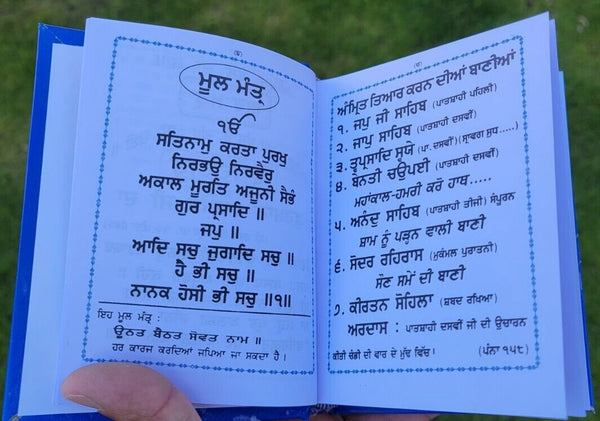 ਮੂਲ ਮੰਤ੍ਰ
ੴ
ਸਤਿਨਾਮੁ ਕਰਤਾ ਪੁਰਖੁ
ਨਿਰਭਉ ਨਿਰਵੈਰੁ
ਅਕਾਲ ਮੂਰਤਿ ਅਜੂਨੀ ਸੈਭੰ
ਗੁਰ ਪ੍ਰਸਾਦਿ ॥
ਜਪੁ ॥
ਆਦਿ ਸਚੁ ਜੁਗਾਦਿ ਸਚੁ ॥
ਹੈ ਭੀ ਸਚੁ ॥
ਨਾਨਕ ਹੋਸੀ ਭੀ ਸਚੁ ॥੧॥
ਇਹ ਮੂਲ ਮੰਤ੍ਰ :
ਊਠਤ ਬੈਠਤ ਸੋਵਤ ਨਾਮ ॥
ਹਰ ਕਾਰਜ ਕਰਦਿਆਂ ਜਪਿਆ ਜਾ ਸਕਦਾ ਹੈ ।
ਅੰਮ੍ਰਿਤ ਤਿਆਰ ਕਰਨ ਦੀਆਂ ਬਾਣੀਆਂ
੧. ਜਪੁ ਜੀ ਸਾਹਿਬ (ਪਾਤਸ਼ਾਹੀ ਪਹਿਲੀ)
੨. ਜਾਪੁ ਸਾਹਿਬ (ਪਾਤਸ਼ਾਹੀ ਦਸਵੀਂ)
੩. ਤ੍ਵਪ੍ਰਸਾਦਿ ਸ੍ਵਯੇ (ਪਾ. ਦਸਵੀਂ)(ਸ੍ਰਾਵਗ ਸੁਧ.....)
੪. ਬੇਨਤੀ ਚਉਪਈ (ਪਾਤਸ਼ਾਹੀ ਦਸਵੀਂ)
ਮਹਾਂਕਾਲ-ਹਮਰੀ ਕਰੋ ਹਾਥ.....
੫. ਅਨੰਦੁ ਸਾਹਿਬ (ਪਾਤਸ਼ਾਹੀ ਤੀਜੀ) ਸੰਪੂਰਨ
ਸ਼ਾਮ ਨੂੰ ਪੜ੍ਹਨ ਵਾਲੀ ਬਾਣੀ
੬. ਸੋਦਰ ਰਹਿਰਾਸ (ਮੁਕੰਮਲ ਪੁਰਾਤਨੀ)
ਸੌਣ ਸਮੇਂ ਦੀ ਬਾਣੀ
੭. ਕੀਰਤਨ ਸੋਹਿਲਾ (ਸ਼ਬਦ ਰਖਿਆ)
ਅਰਦਾਸ : ਪਾਤਸ਼ਾਹੀ ਦਸਵੀਂ ਜੀ ਦੀ ਉਚਾਰਨ
ਕੀਤੀ ਚੰਡੀ ਦੀ ਵਾਰ ਦੇ ਮੁੱਢ ਵਿੱਚ । (ਪੰਨਾ ੧੫੮)